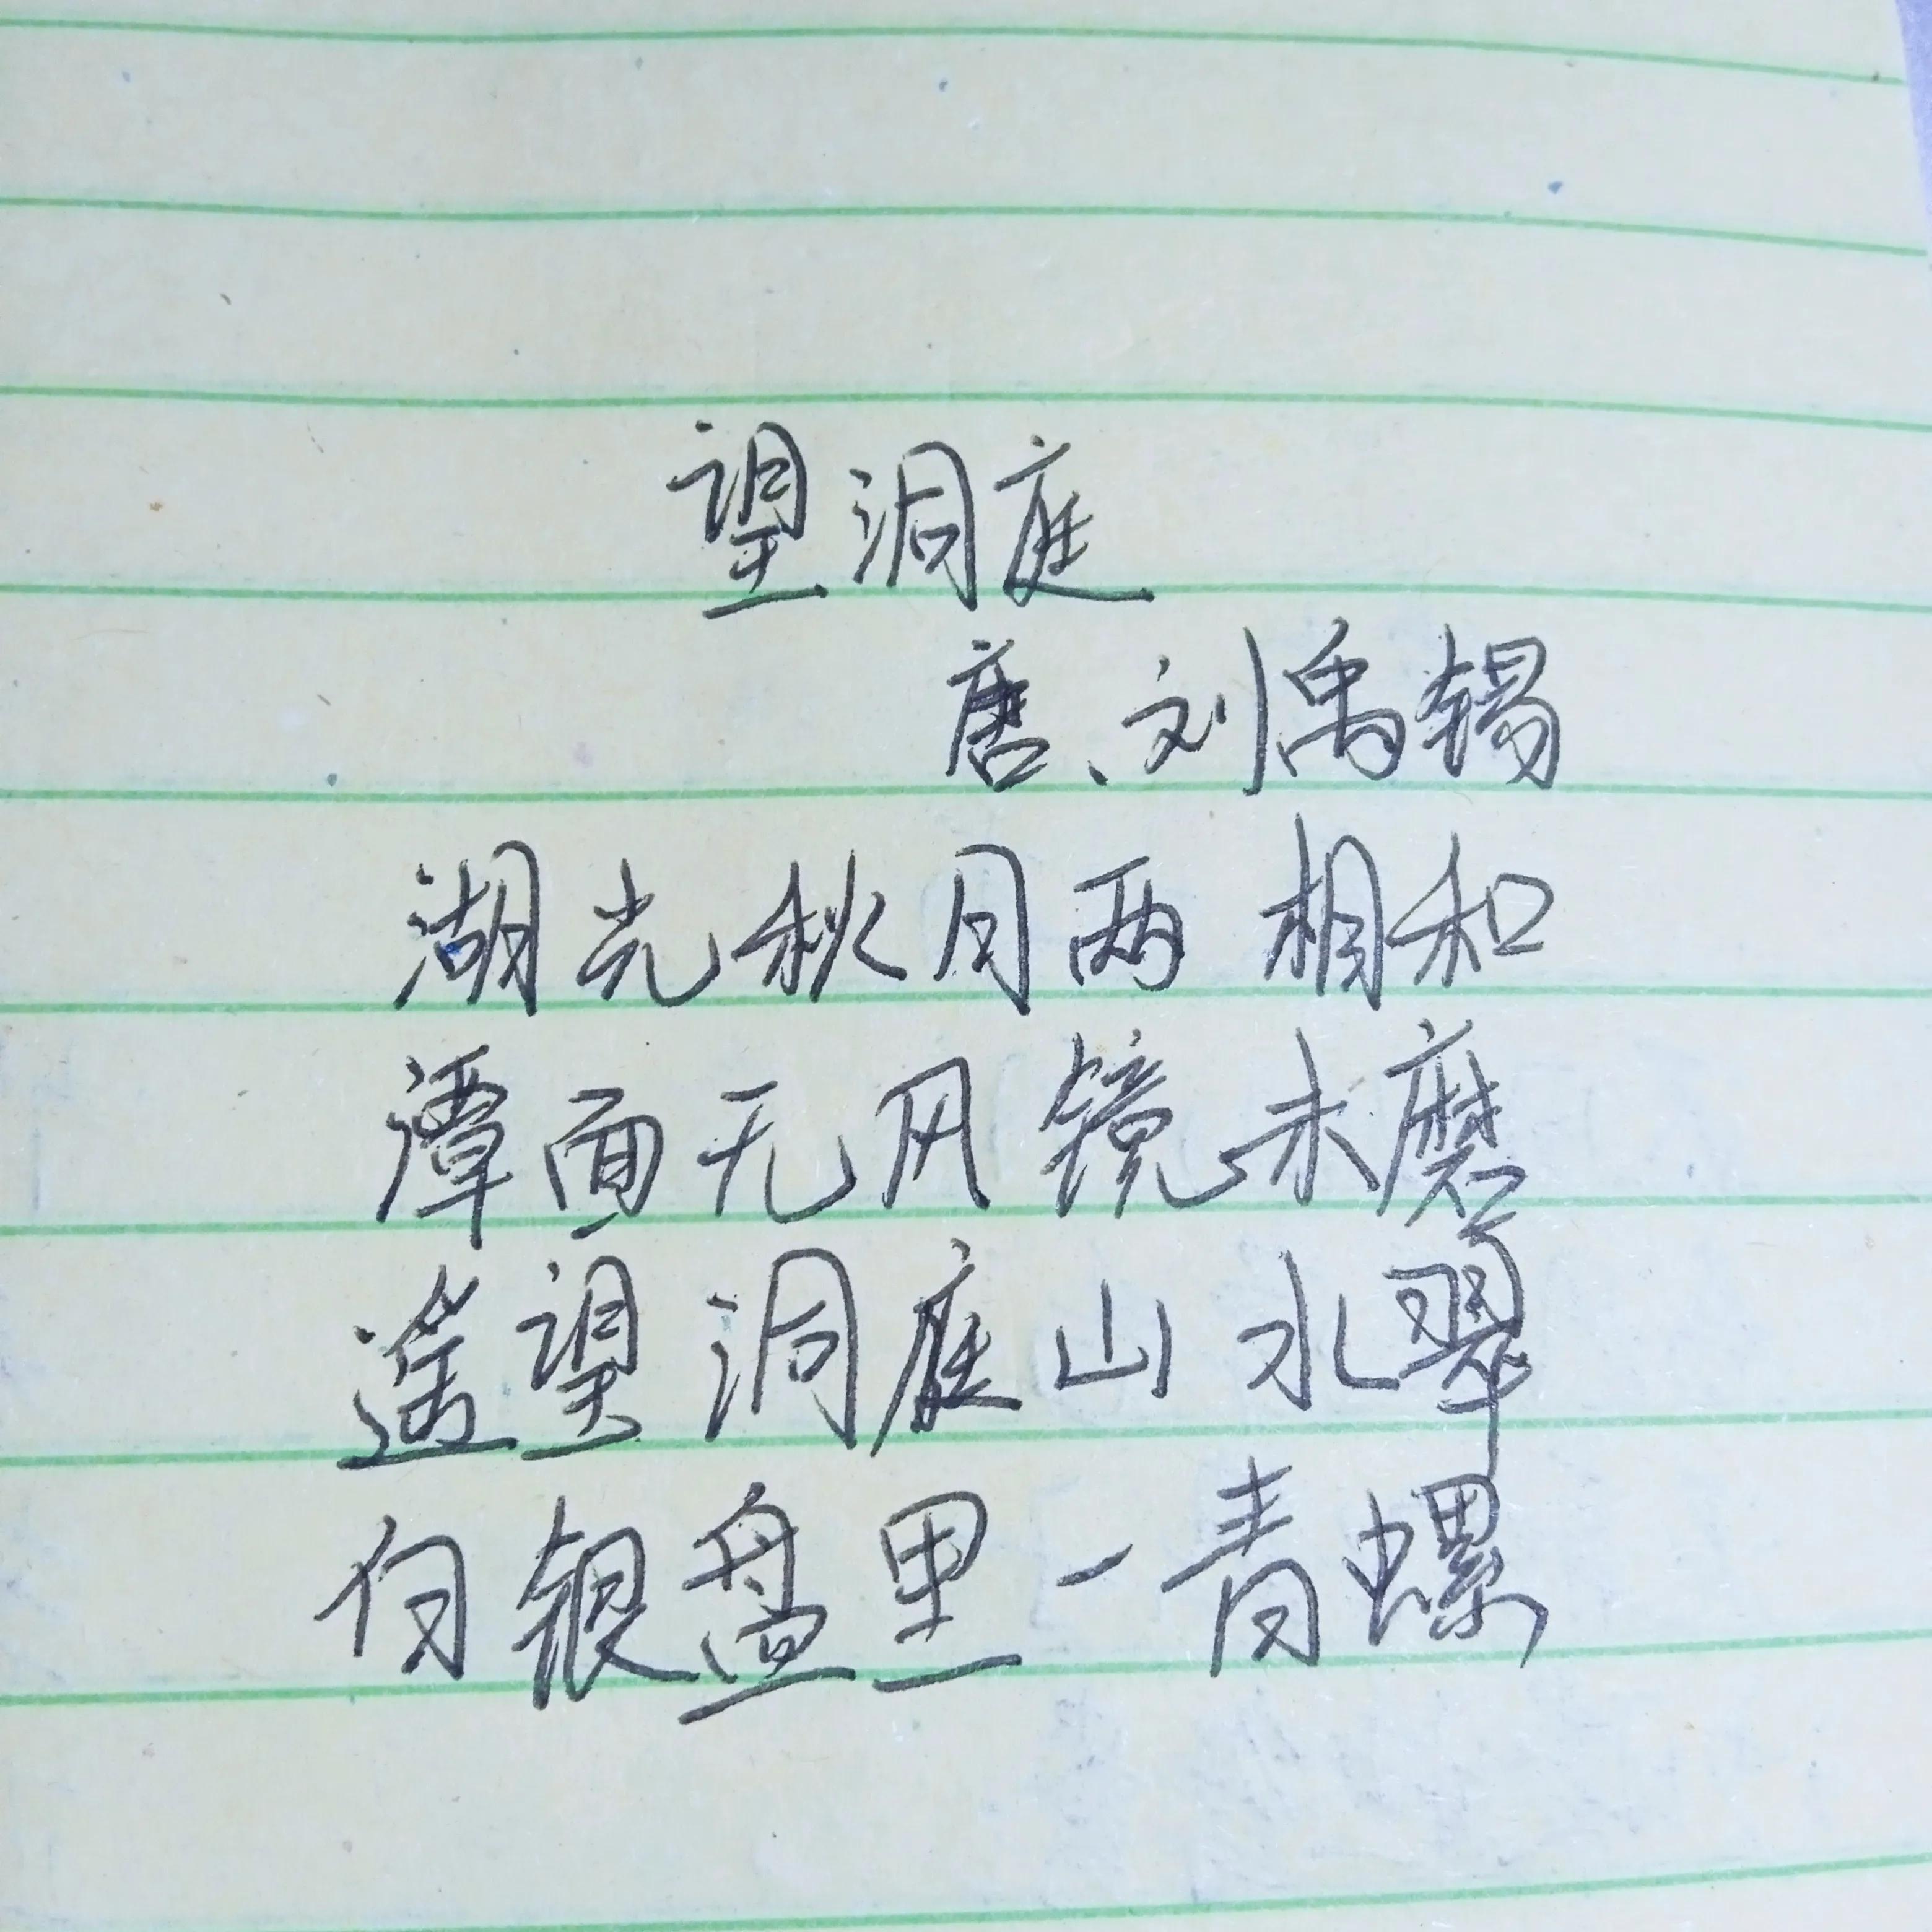 望洞庭
唐、刘禹锡
湖光秋月两相和
潭面无风镜未磨
遥望洞庭山水翠
白银盘里一青螺